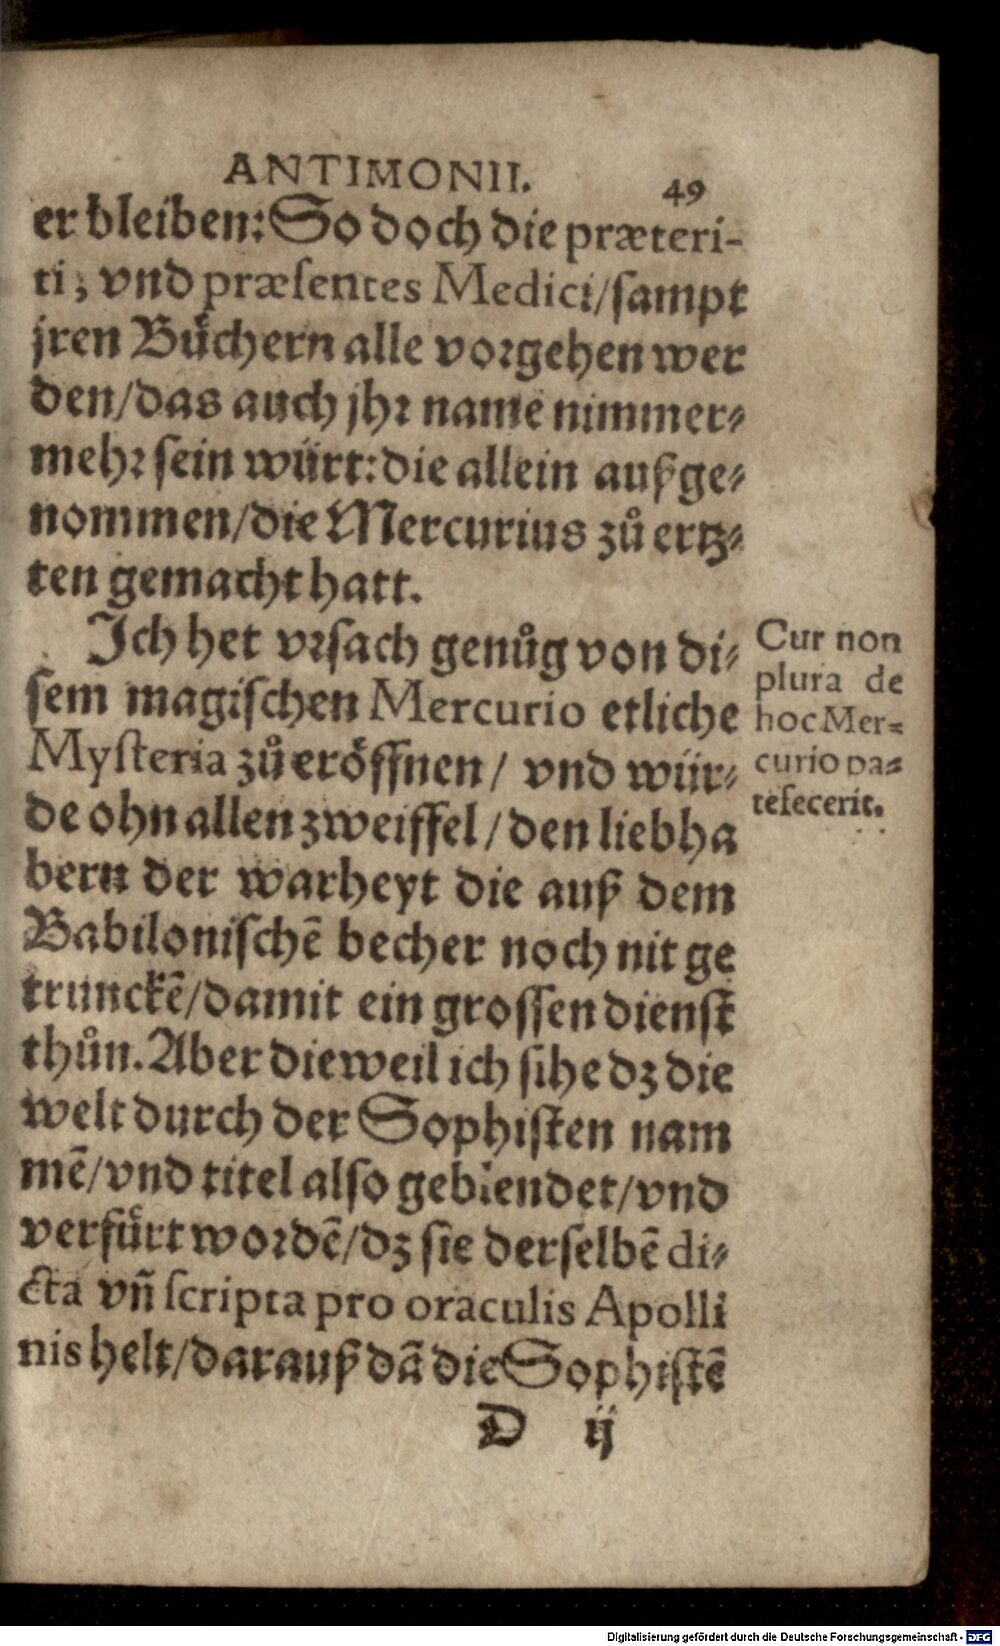 ANTIMONII. 49
er bleiben: So doch die præteri-
ti, vnd præsentes Medici/sampt
jren Bůchern alle vorgehen wer
den/das auch jhr name nimmer⸗
mehr sein würt: die allein außge⸗
nommen/die Mercurius zů ertz⸗
ten gemacht hatt.
Ich het vrsach genůg von di⸗
sem magischen Mercurio etliche
Mysteria zů eröffnen/ vnd wür⸗
de ohn allen zweiffel/den liebha
bern der warheyt die auß dem
Babilonischē becher noch nit ge
trunckē/damit ein grossen dienst
thůn. Aber dieweil ich sihe dz die
welt durch der Sophisten nam
mē/vnd titel also geblendet/vnd
verfürt wordē/dz sie derselbē di⸗
cta vñ scripta pro oraculis Apolli
nis helt/darauß dā die Sophistē
D ij
Cur non
plura de
hoc Mer⸗
curio pa⸗
tefecerit.
Digitalisierung gefördert durch die Deutsche Forschungsgemeinschaft - DFG